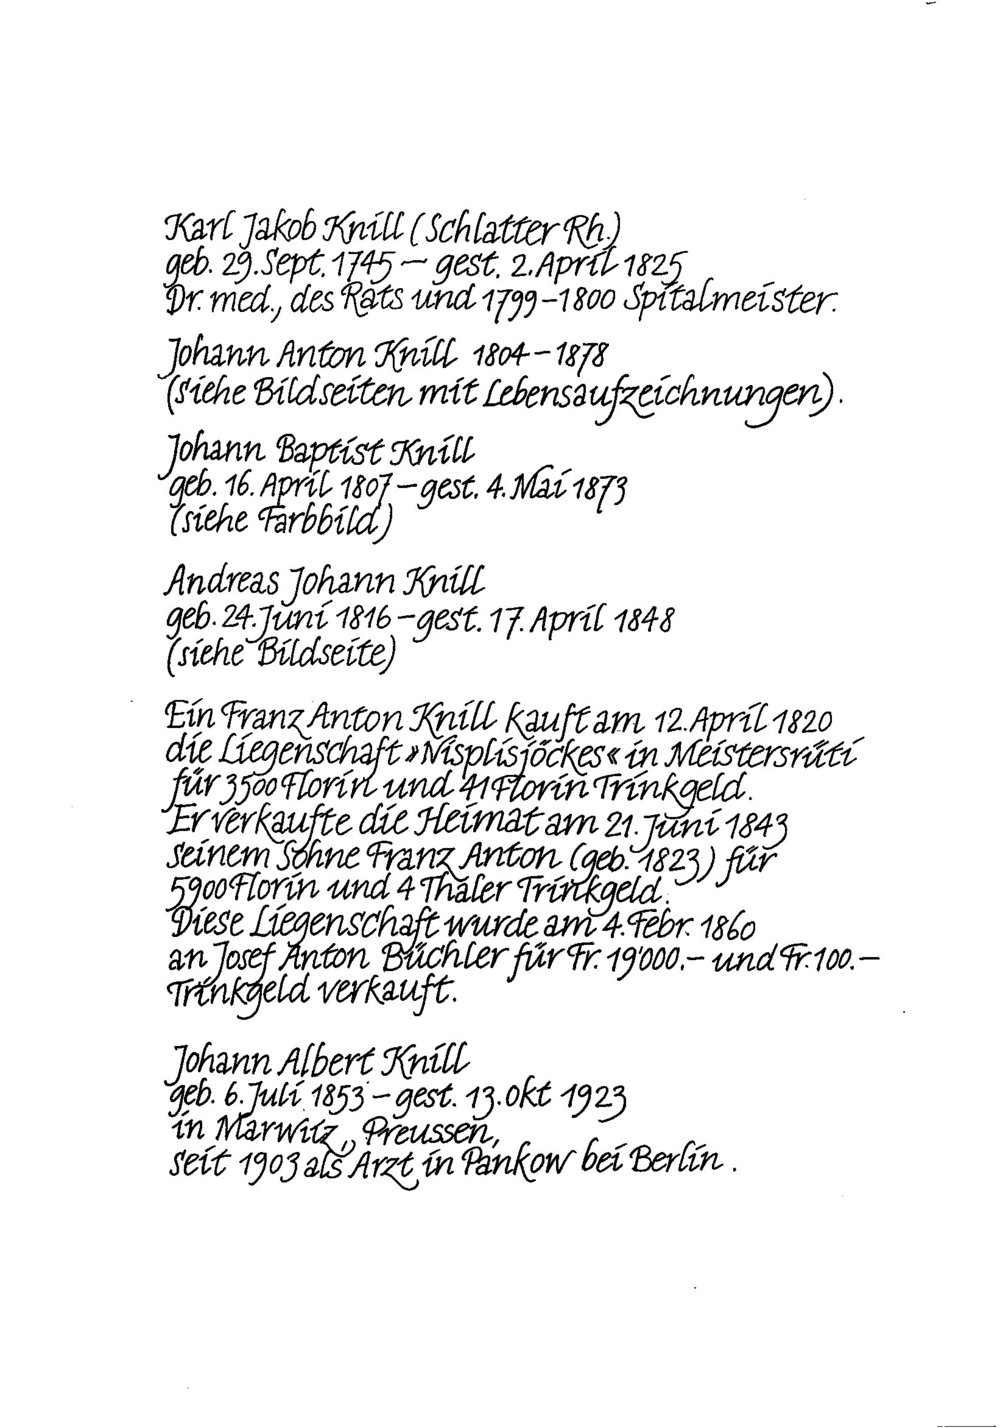 Karl Jakob Knill (Schlatter Rh.)
geb. 29. Sept. 1745 – gest. 2. April 1825
Dr. med., des Rats und 1799–1800 Spitalmeister.
Johann Anton Knill 1804–1878
(siehe Bildseiten mit Lebensaufzeichnungen).
Johann Baptist Knill
geb. 16. April 1807 – gest. 4. Mai 1873
(siehe Farbbild)
Andreas Johann Knill
geb. 24. Juni 1816 – gest. 17. April 1848
(siehe Bildseite)
Ein Franz Anton Knill kauft am 12. April 1820
die Liegenschaft »Nisplisjöckes« in Meistersrüti
für 3500 Florin und 41 Florin Trinkgeld.
Er verkaufte die Heimat am 21. Juni 1843
seinem Sohne Franz Anton (geb. 1823) für
5900 Florin und 4 Thaler Trinkgeld.
Diese Liegenschaft wurde am 4. Febr. 1860
an Josef Anton Büchler für Fr. 19'000.– und Fr. 100.–
Trinkgeld verkauft.
Johann Albert Knill
geb. 6. Juli 1853 – gest. 13. Okt 1923
in Marwitz, Preussen,
seit 1903 als Arzt in Pankow bei Berlin.